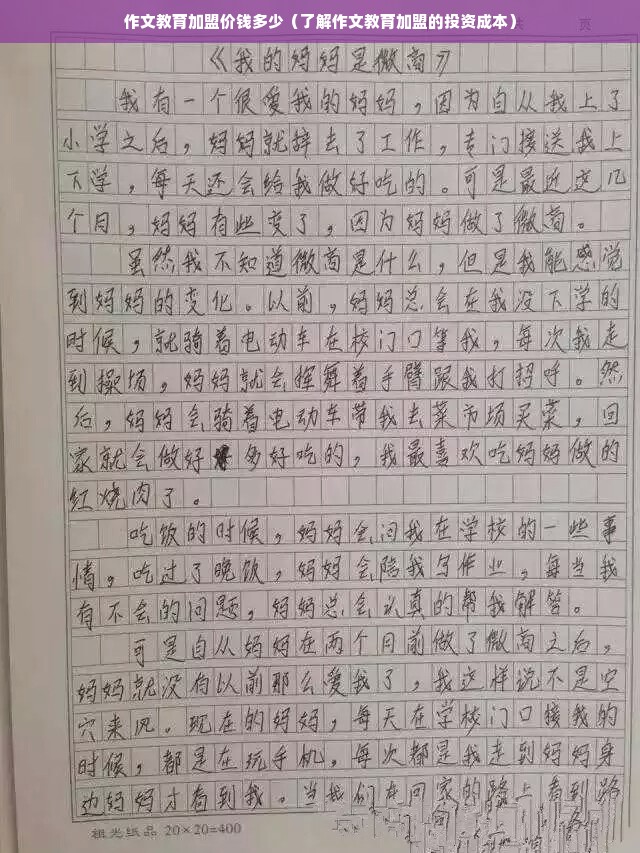 作文教育加盟价钱多少（了解作文教育加盟的投资成本）
页
《我的妈妈是微商》
我有一个很爱我的妈妈，因为自从我上了
小学之后，妈妈就辞去了工作，专门接送我上
下学，每天还会给我做好吃的。可是最近这几
个月，妈妈有些变了，因为妈妈做了微商。
虽然我不知道微商是什么，但是我能感觉
到妈妈的变化。以前，妈妈总会在我没下学的
时候，就骑着电动车在校门口等我，每次我走
到操场，妈妈就会挥舞着手臂跟我打招呼。然
后，妈妈会骑着电动车带我去菜市场买菜，回
家就会做好多好吃的，我最喜欢吃妈妈做的
红烧肉了。
吃饭的时候，妈妈会问我在学校的一些事
情，吃过了晚饭，妈妈会陪我写作业，每当我
有不会的问题，妈妈总会认真的帮我解答。
可是自从妈妈在两个月前做了微商之后，
妈妈就没有以前那么爱我了，我这样说不是空
穴来风。现在的妈妈，每天在学校门口接我的
时候，都是在玩手机，每次都是我走到妈妈身
边妈妈才看到我。当我们在回家的路上看到路
祖光纸品 20×20=400